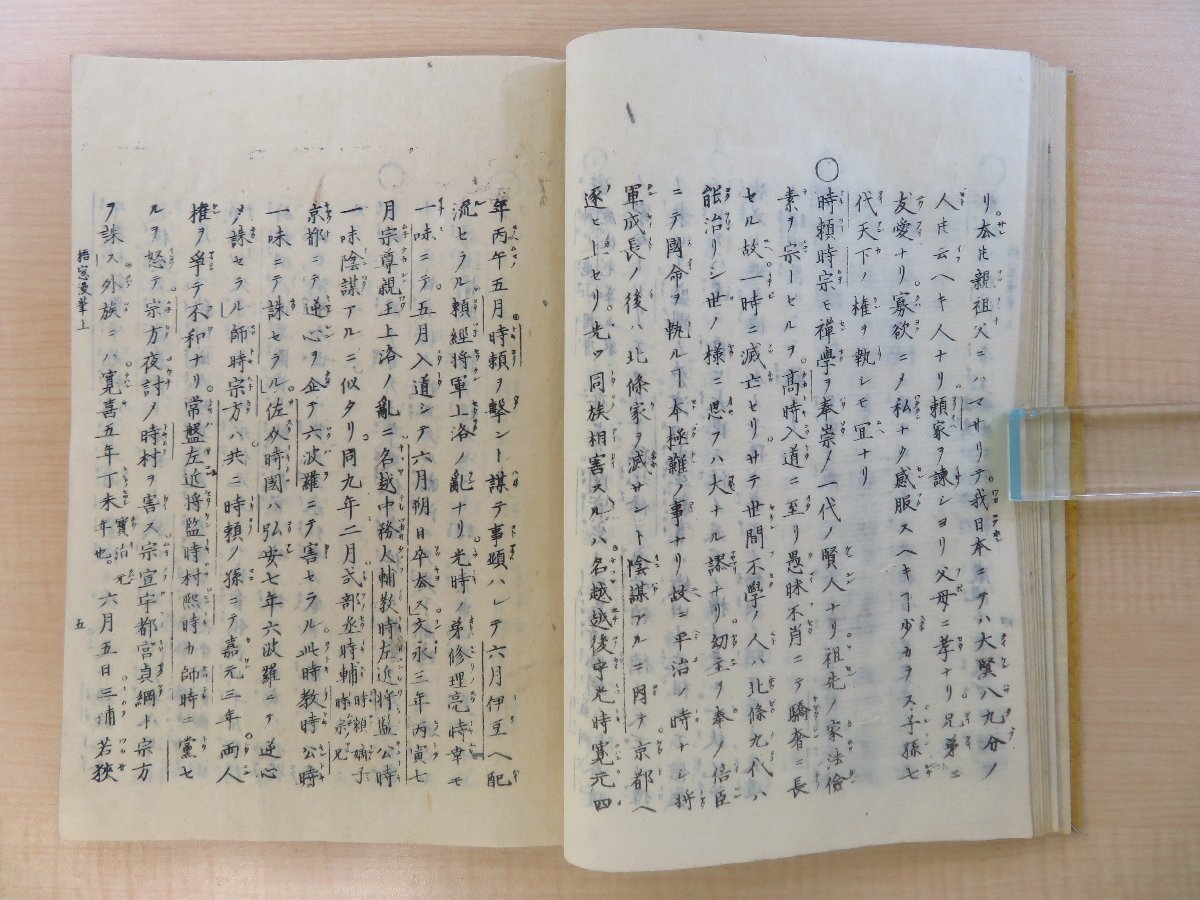 リ本ﾋ親祖父ニハマサリテ我日本ニテハ大賢八九分ノ
人ﾋ云ヘキ人ナリ頼家ヲ諫シヨリ父母ニ孝ナリ兄弟ニ
友愛ナリ寡欲ニメ私ナク感服スヘキヿ少カラス子孫七
代天下ノ権ヲ執シモ冝ナリ
〇時頼時宗モ禪學ヲ奉崇ノ一代ノ賢人ナリ祖先ノ家法儉
素ヲ宗ーヒルヲ髙時入道ニ至リ愚昧不肖ニテ驕奢ニ長
セル故一時ニ滅亡ヒリサテ世間不學ノ人ハ北條九代ハ
能治リシ世ノ様ニ思フハ大ナル謬ナリ幼主ヲ奉ノ倍臣
ニテ國命ヲ執ルヿ本極難ノ事ナリ故ニ平治ノ時ナシ将
軍成長ノ後ハ北條家ヲ滅サント陰謀アルニ因テ京都ヘ
逐ヒ上セリ先ツ同族相害スルハ名越越後守光時寛元四
年丙午五月時頼ヲ撃ント謀テ事顕ハレテ六月伊豆ヘ配
流セラル頼經将軍上洛ノ亂ナリ光時ノ弟修理亮時幸モ
一味ニテ五月入道シテ六月朔日卒去ス文永三年丙寅七
月宗尊親王上洛ノ亂ニ名越中務大輔教時左近将監公時
一味陰謀アルニ似タリ同九年二月式部丞時輔時頼嫡子時宗兄
京都ニテ逆心ヲ企テ六波羅ニテ害セラル此時教時公時
一味ニテ誅セラル佐介時國ハ弘安七年六波羅ニテ逆心
ヲ誅セラル師時宗方ハ共ニ時頼ノ孫ニテ嘉元三年両人
権ヲ爭テ不和ナリ常盤左近将監時村熙時カ師時ニ黨セ
ルヲ怒テ宗方夜討ノ時村ヲ害ス宗宣宇都宮貞綱ト宗方
ヲ誅ス外族ニハ寛喜五年丁未年也寳治元六月五日三浦若狭
梧窓漫筆上
五